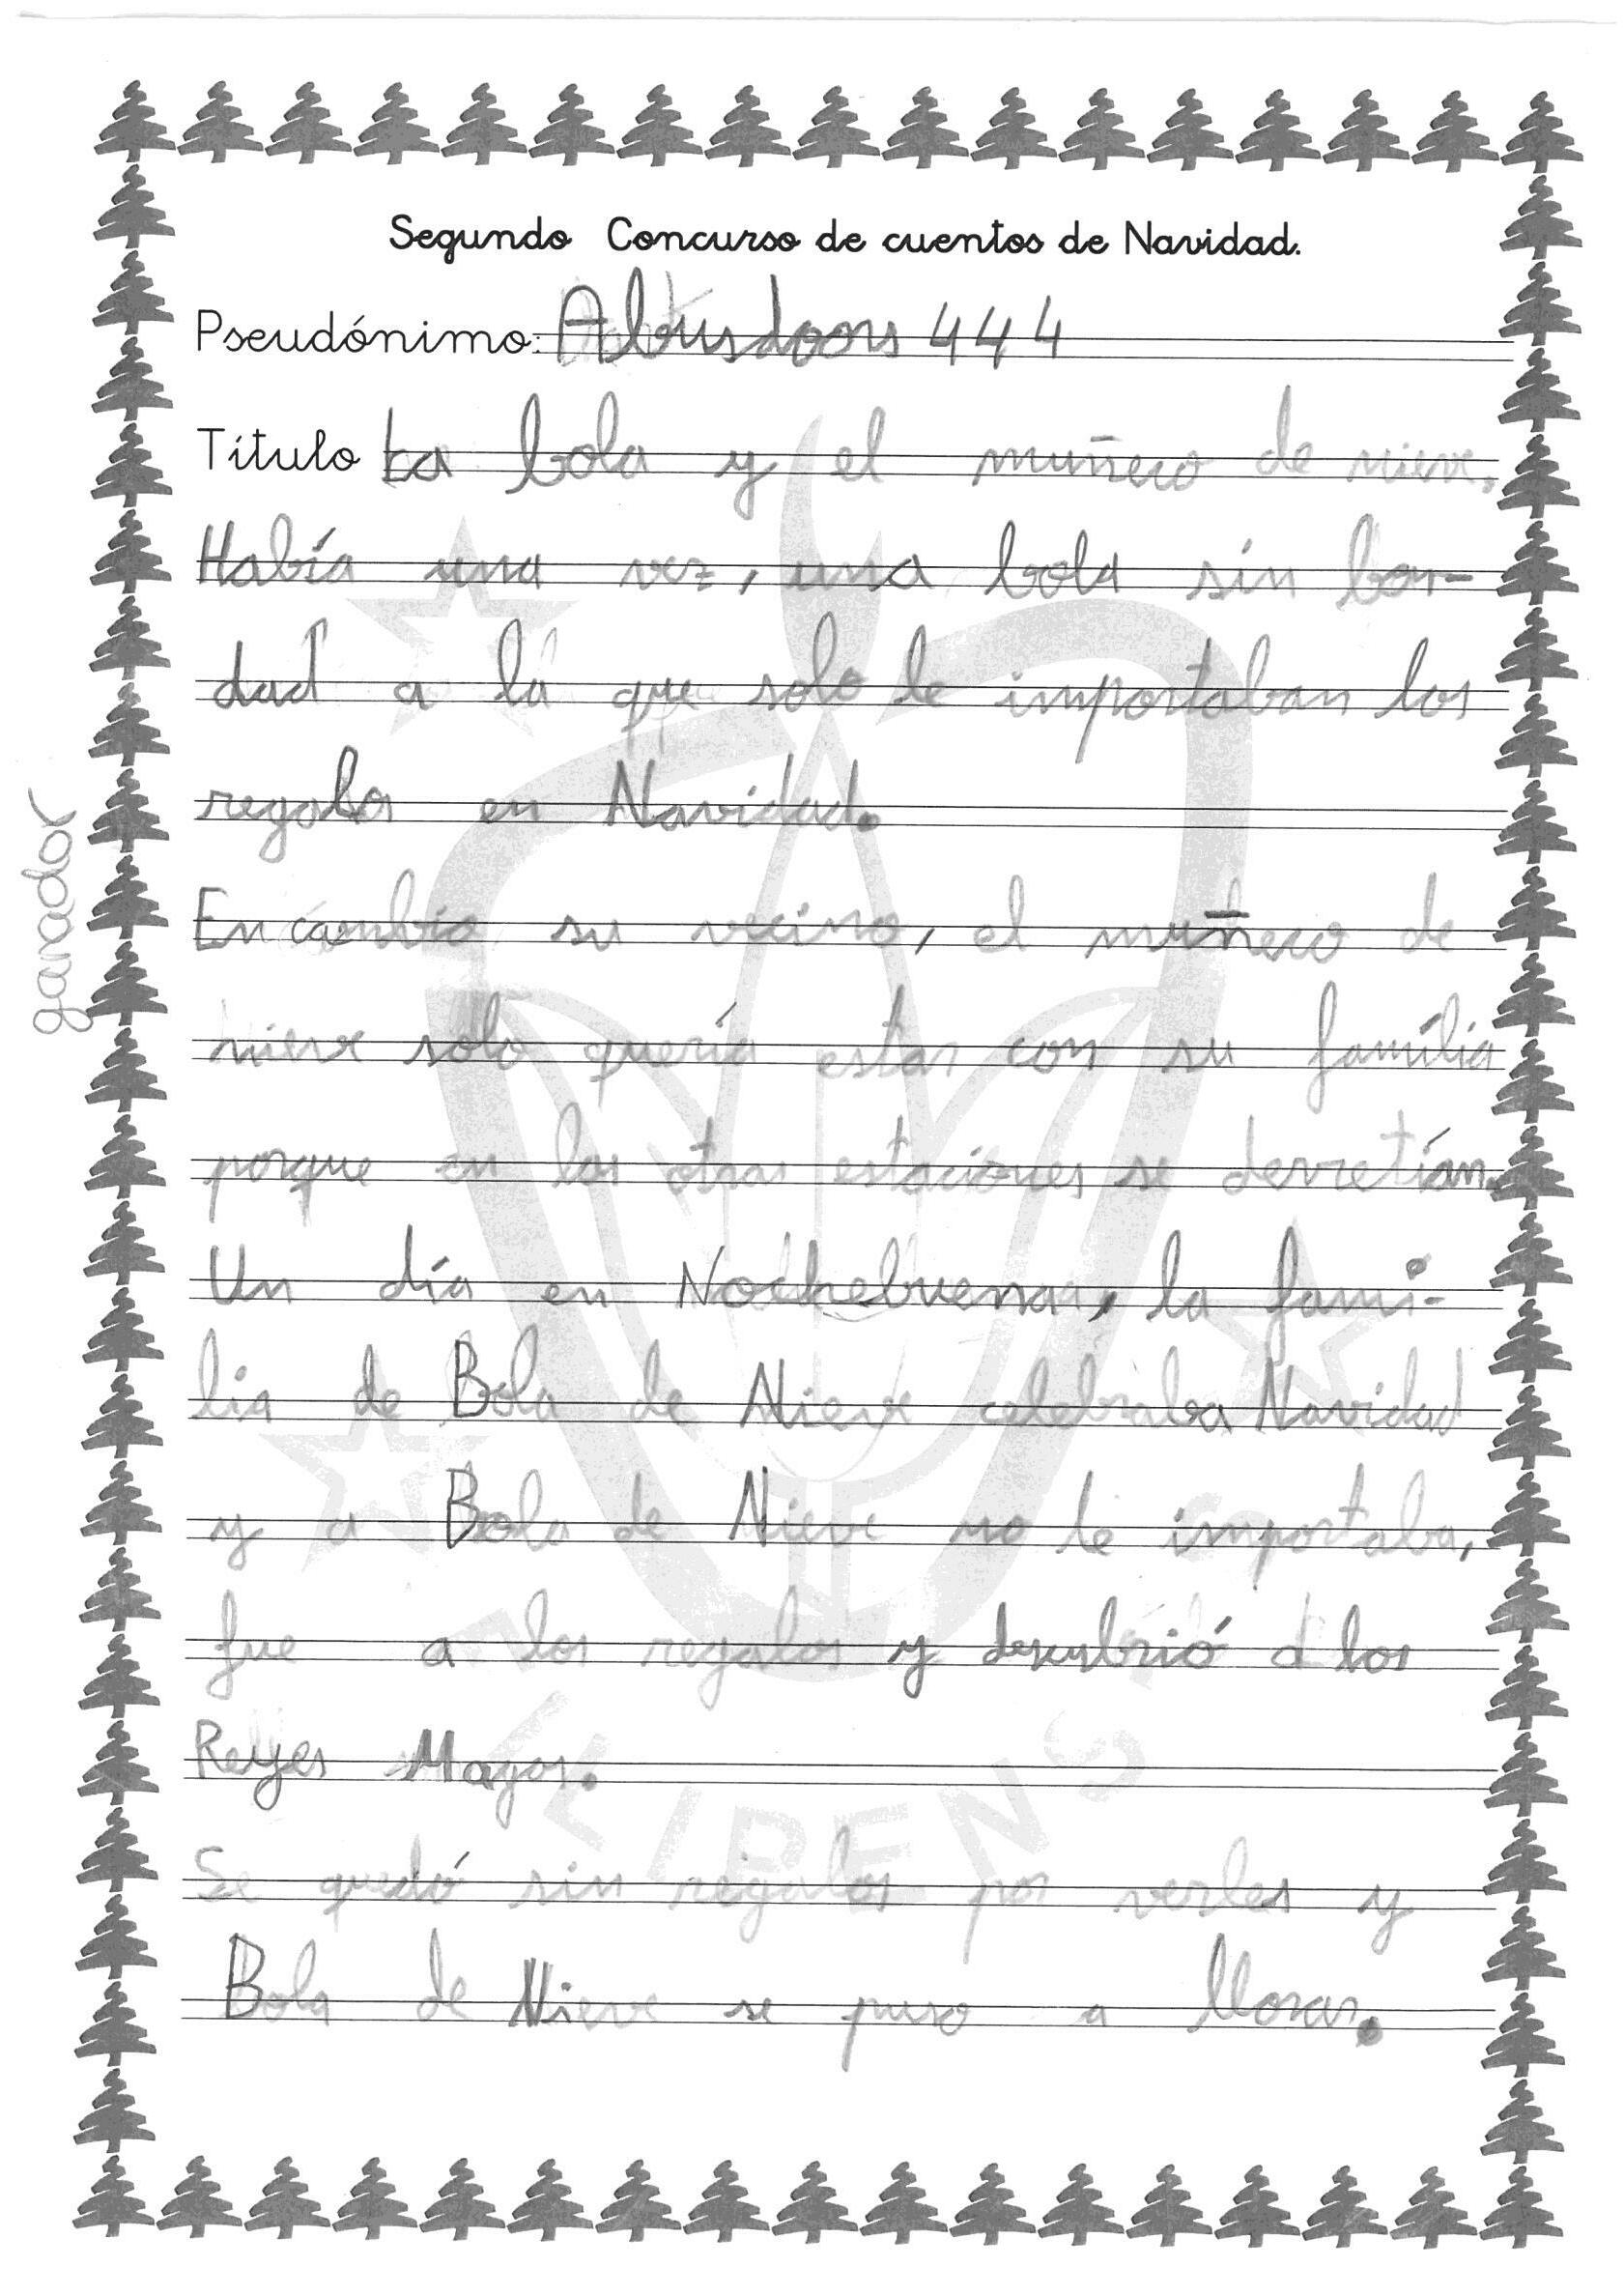 Segundo Concurso de cuentos de Navidad.
Pseudónimo: Albusdoors 444
Título La bola y el muñeco de nieve.
Había una vez, una bola sin bon-
dad a la que solo le importaban los
regalos en Navidad.
En cambio su vecino, el muñeco de
nieve solo quería estar con su família
porque en las otras estaciones se derretían.
Un día en Nochebuena, la fami-
lia de Bola de Nieve celebraba Navidad
y a Bola de Nieve no le importaba,
fue a los regalos y descubrió a los
Reyes Magos.
Se quedó sin regalos por verles y
Bola de Nieve se puso a llorar.
ganador